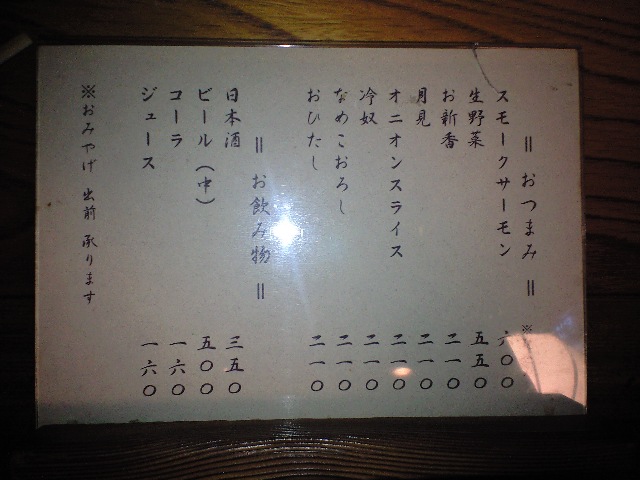 ＝ おつまみ ＝ ※
スモークサーモン 六〇〇
生野菜 五五〇
お新香 二一〇
月見 二一〇
オニオンスライス 二一〇
冷奴 二一〇
なめこおろし 二一〇
おひたし 二一〇
＝ お飲み物 ＝
日本酒 三五〇
ビール（中） 五〇〇
コーラ 一六〇
ジュース 一六〇
※おみやげ 出前 承ります